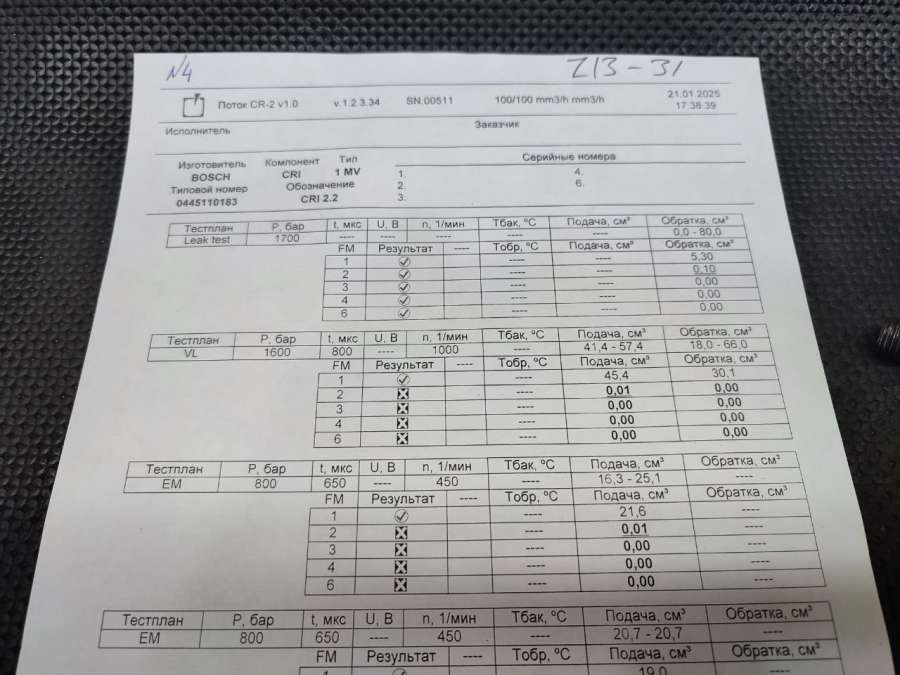 N4
Z13-31
Поток CR-2 v1.0 v.1.2.3.34 SN:00511 100/100 mm3/h mm3/h 21.01.2025 17:38:39
Исполнитель Заказчик
Изготовитель Компонент Тип Серийные номера
BOSCH CRI 1 MV 1. 4.
Типовой номер Обозначение 2. 6.
0445110183 CRI 2.2 3.
Тестплан P, бар t, мкс U, В n, 1/мин Тбак, °С Подача, см³ Обратка, см³
Leak test 1700 ---- ---- ---- ---- ---- 0,0 - 80,0
FM Результат ---- Тобр, °С Подача, см³ Обратка, см³
1 ---- ---- 5,30
2 ---- ---- 0,10
3 ---- ---- 0,00
4 ---- ---- 0,00
6 ---- ---- 0,00
Тестплан P, бар t, мкс U, В n, 1/мин Тбак, °С Подача, см³ Обратка, см³
VL 1600 800 ---- 1000 ---- 41,4 - 57,4 18,0 - 66,0
FM Результат ---- Тобр, °С Подача, см³ Обратка, см³
1 ---- 45,4 30,1
2 ---- 0,01 0,00
3 ---- 0,00 0,00
4 ---- 0,00 0,00
6 ---- 0,00 0,00
Тестплан P, бар t, мкс U, В n, 1/мин Тбак, °С Подача, см³ Обратка, см³
EM 800 650 ---- 450 ---- 16,3 - 25,1 ----
FM Результат ---- Тобр, °С Подача, см³ Обратка, см³
1 ---- 21,6 ----
2 ---- 0,01 ----
3 ---- 0,00 ----
4 ---- 0,00 ----
6 ---- 0,00 ----
Тестплан P, бар t, мкс U, В n, 1/мин Тбак, °С Подача, см³ Обратка, см³
EM 800 650 ---- 450 ---- 20,7 - 20,7 ----
FM Результат ---- Тобр, °С Подача, см³ Обратка, см³
1 ---- 19,0 ----